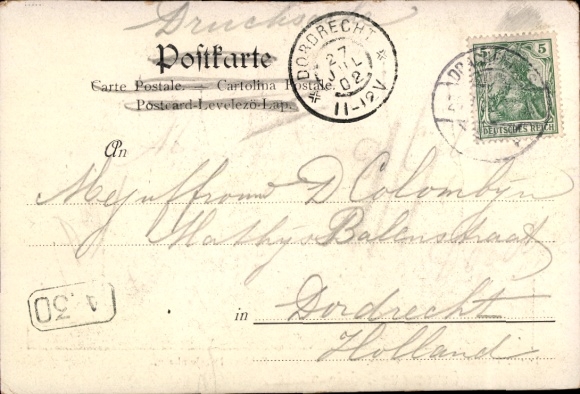 Drucksache
Postkarte
Carte Postale. — Cartolina Postale.
Postcard-Levelező-Lap.
DORDRECHT
27 JUL 02
11-12V
5 5
DEUTSCHES REICH
An
Mejuffrouw D Colombijn
Mathijs Balenstraat
in Dordrecht
Holland
4.30